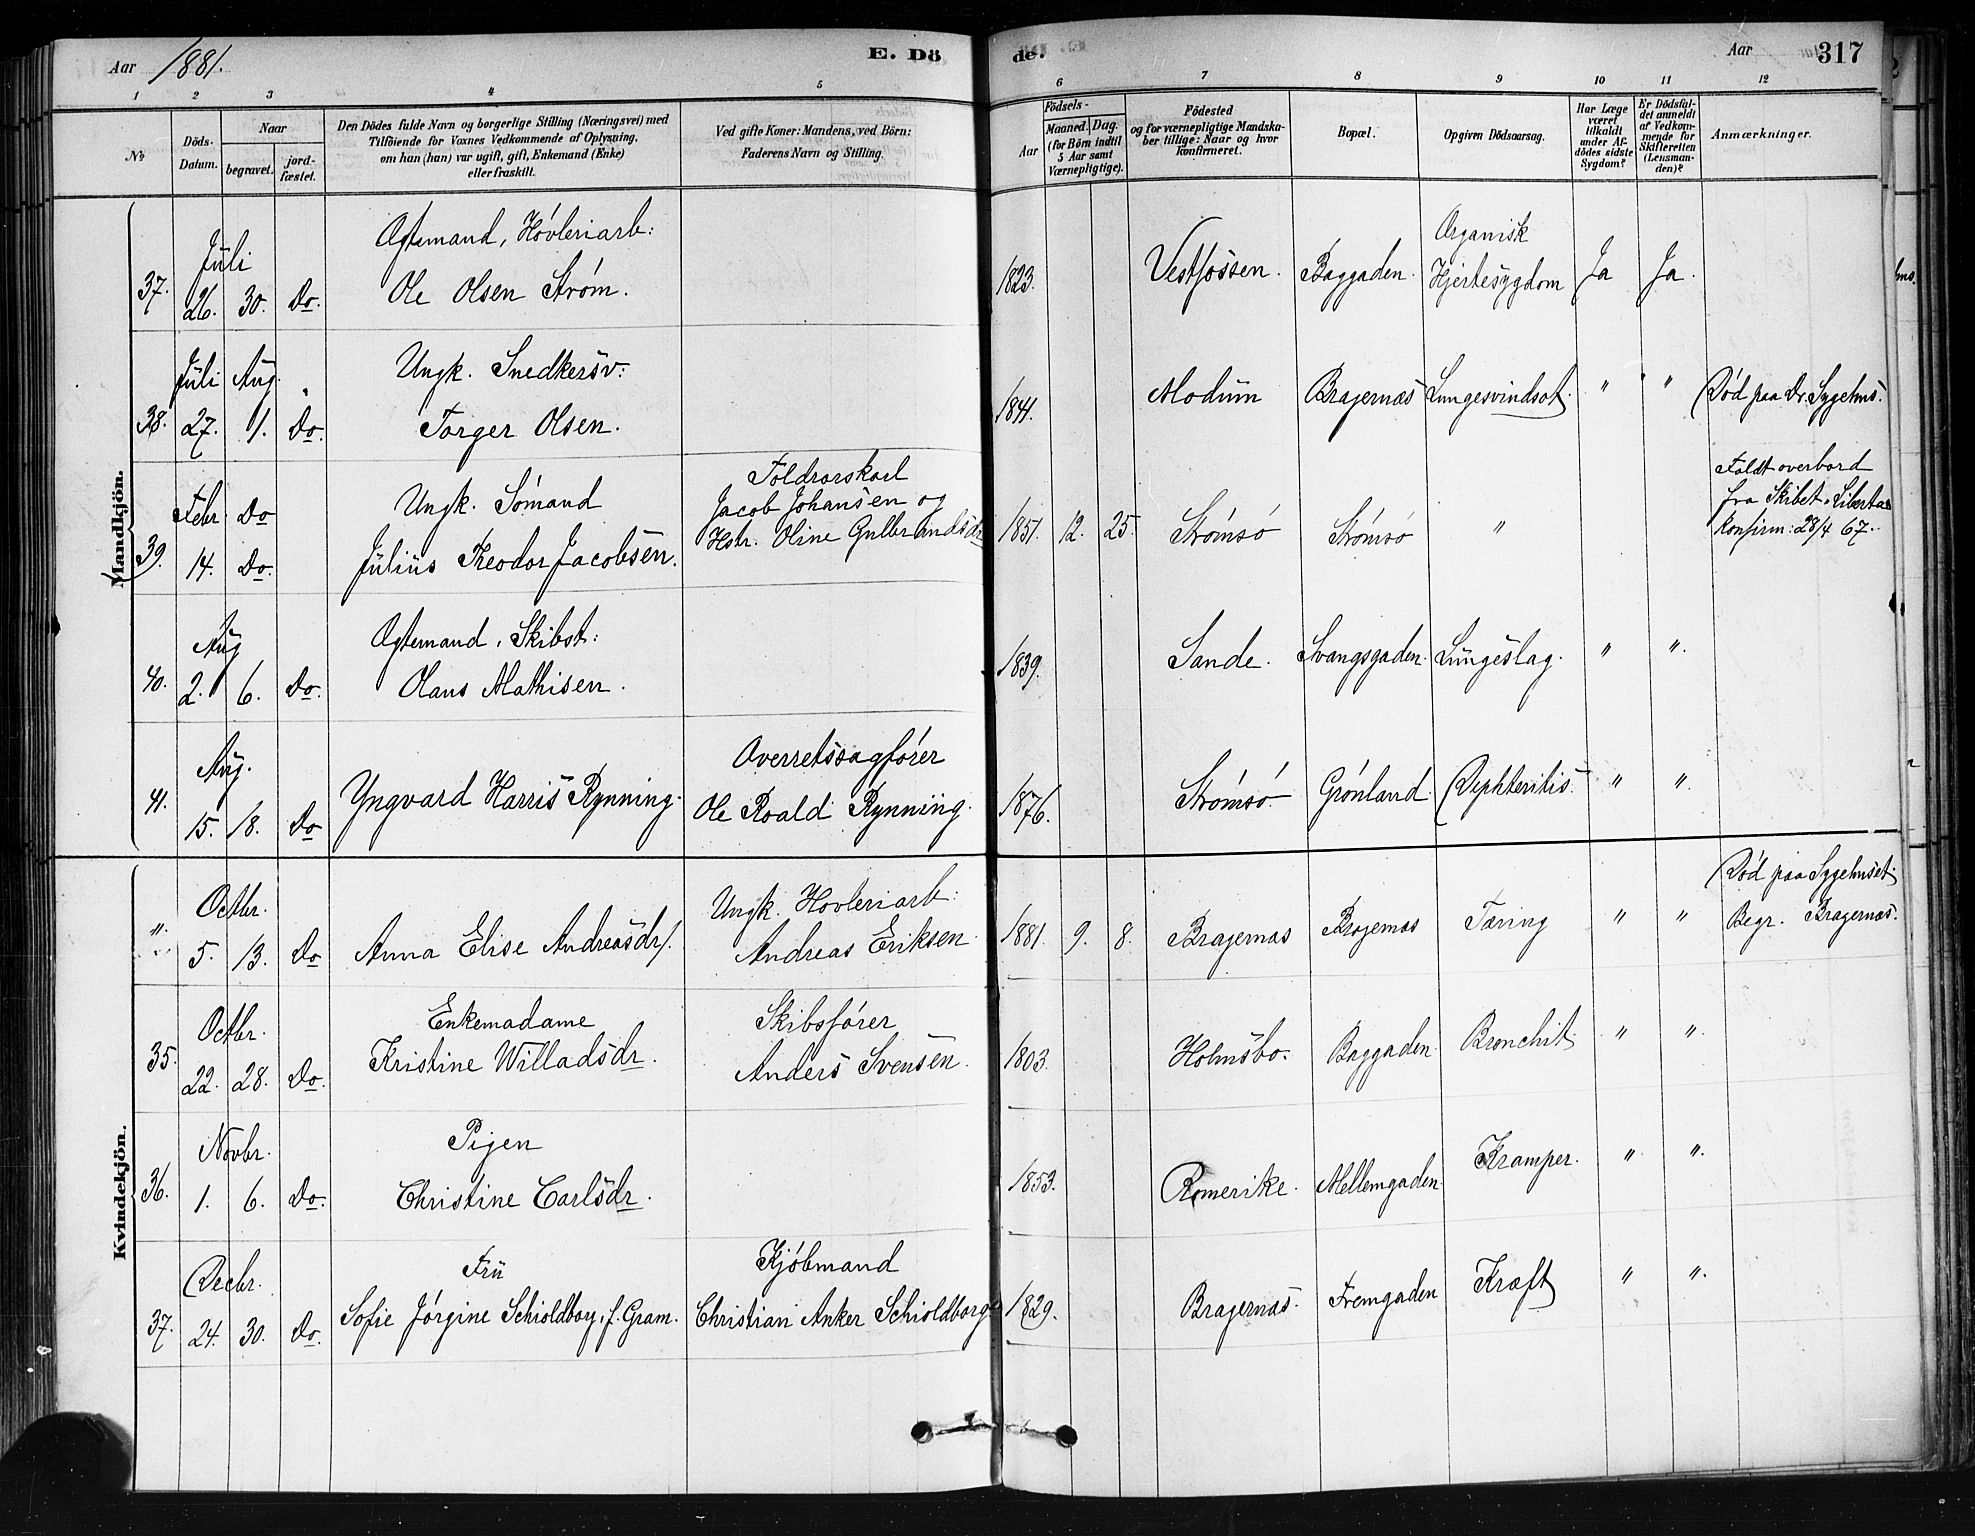 Aar 1881.
E. Dö
de.
Aar
317
1 2 3 4 5 6 7 8 9 10 11 12
No
Döds-
Datum.
Naar
begravet.
jord-
fæstet.
Den Dödes fulde Navn og borgerlige Stilling (Næringsvei) med
Tilföiende for Voxnes Vedkommende af Oplysning,
om han (hun) var ugift, gift, Enkemand (Enke)
eller fraskilt.
Ved gifte Koner: Mandens, ved Börn:
Faderens Navn og Stilling.
Födsels-
Aar
Maaned.
Dag.
(for Börn indtil
5 Aar samt
Værnepligtige).
Födested
og for værnepligtige Mandska-
ber tillige: Naar og hvor
konfirmeret.
Bopæl.
Opgiven Dödsaarsag.
Har Læge
været
tilkaldt
under Af-
dödes sidste
Sygdom?
Er Dödsfal-
det anmeldt
af Vedkom-
mende for
Skifteretten
(Lensman-
den)?
Anmærkninger.
Mandkjön.
37. Juli 26. 30. Do.
Ægtemand, Høvleriarb:
Ole Olsen Strøm.
1823. Vestfossen. Baggaden.
Organisk
Hjertesygdom
Ja Ja.
38. Juli 27. Aug. 1. Do.
Ungk. Snedkersv:
Torger Olsen.
1841. Modum Bragernæs Lungesvindsot. " " Død paa Dr. Sygehus.
39. Febr. 14. Do Do.
Ungk. Sømand
Julius Theodor Jacobsen.
Jacob Johansen og
Hstr. Oline Gulbrandsdr
1851. 12. 25. Strømsø Strømsø "
Faldt overbord
fra Skibet "Libertas
Konfirm: 28/4 67.
40. Aug 2. 6. Do.
Ægtemand, Skibst:
Olaus Mathisen.
1839. Sande. Svangsgaden. Lungeslag. " "
41. Aug. 15. 18. Do
Yngvard Harris Rynning.
Overretssagfører
Ole Roald Rynning.
1876. Strømsø. Grønland. Diphteritis. " "
Kvindekjön.
" Octbr. 5. 13. Do
Anna Elise Andreasdr.
Ungk. Høvleriarb:
Andreas Eriksen
1881. 9. 8. Bragernæs Bragernæs Tæring " "
Død paa Sygehuset.
Begr. Bragernæs.
35. Octbr. 22. 28. Do.
Enkemadame
Kristine Willadsdr.
Skibsfører
Anders Svensen.
1803. Holmsbo. Baggaden Bronchit. " "
36. Novbr. 1. 6. Do.
Pigen
Christine Carlsdr.
1853. Romerike. Mellemgaden Kramper. " "
37. Decbr. 24. 30. Do.
Fru
Sofie Jørgine Schioldborg, f. Gram.
Kjøbmand
Christian Anker Schioldborg
1829. Bragernæs. Fremgaden Kræft " "